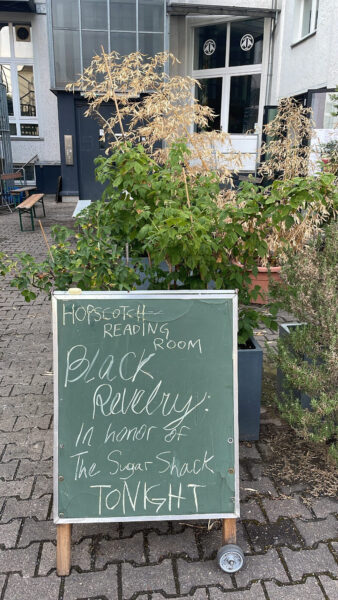 HOPSCOTCH
READING
ROOM
BLACK
Revelry:
In honor of
The Sugar Shack
TONIGHT